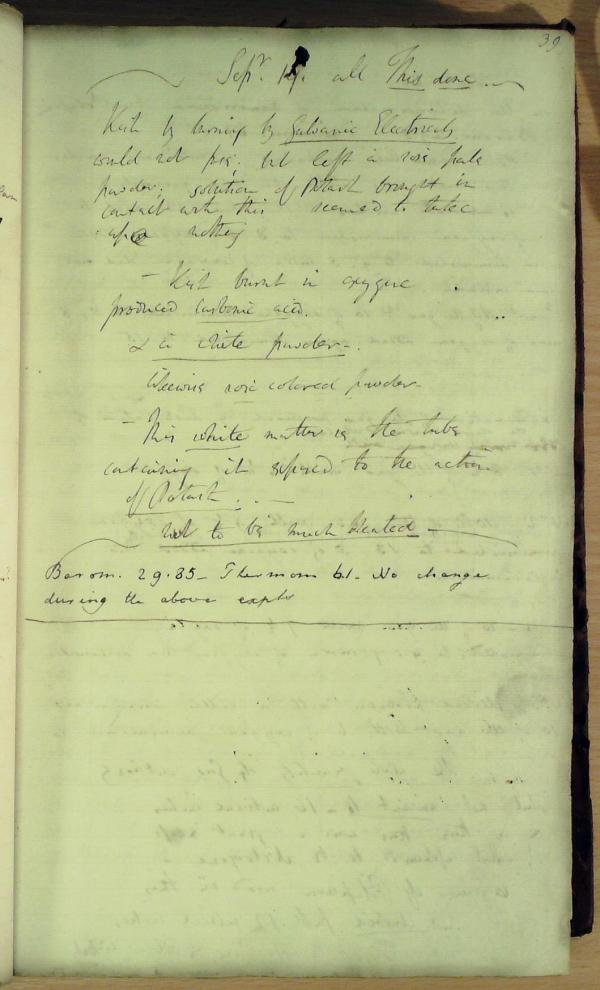 39
Sepr. 19. all This done.
by burning by Galvanic Electricity
would not fuse; but left a rose pale
powder; solution of Potash brought in
contact with this seemed to take
up nothing
- burnt in oxygene
produced carbonic acid.
& a white powder -.
Likewise rose colored powder -
- This white matter in the tube
containing it exposed to the action
of Potash. . -
not to be much heated -
Barom. 29.85 - Thermom 61 - No change
during the above expts